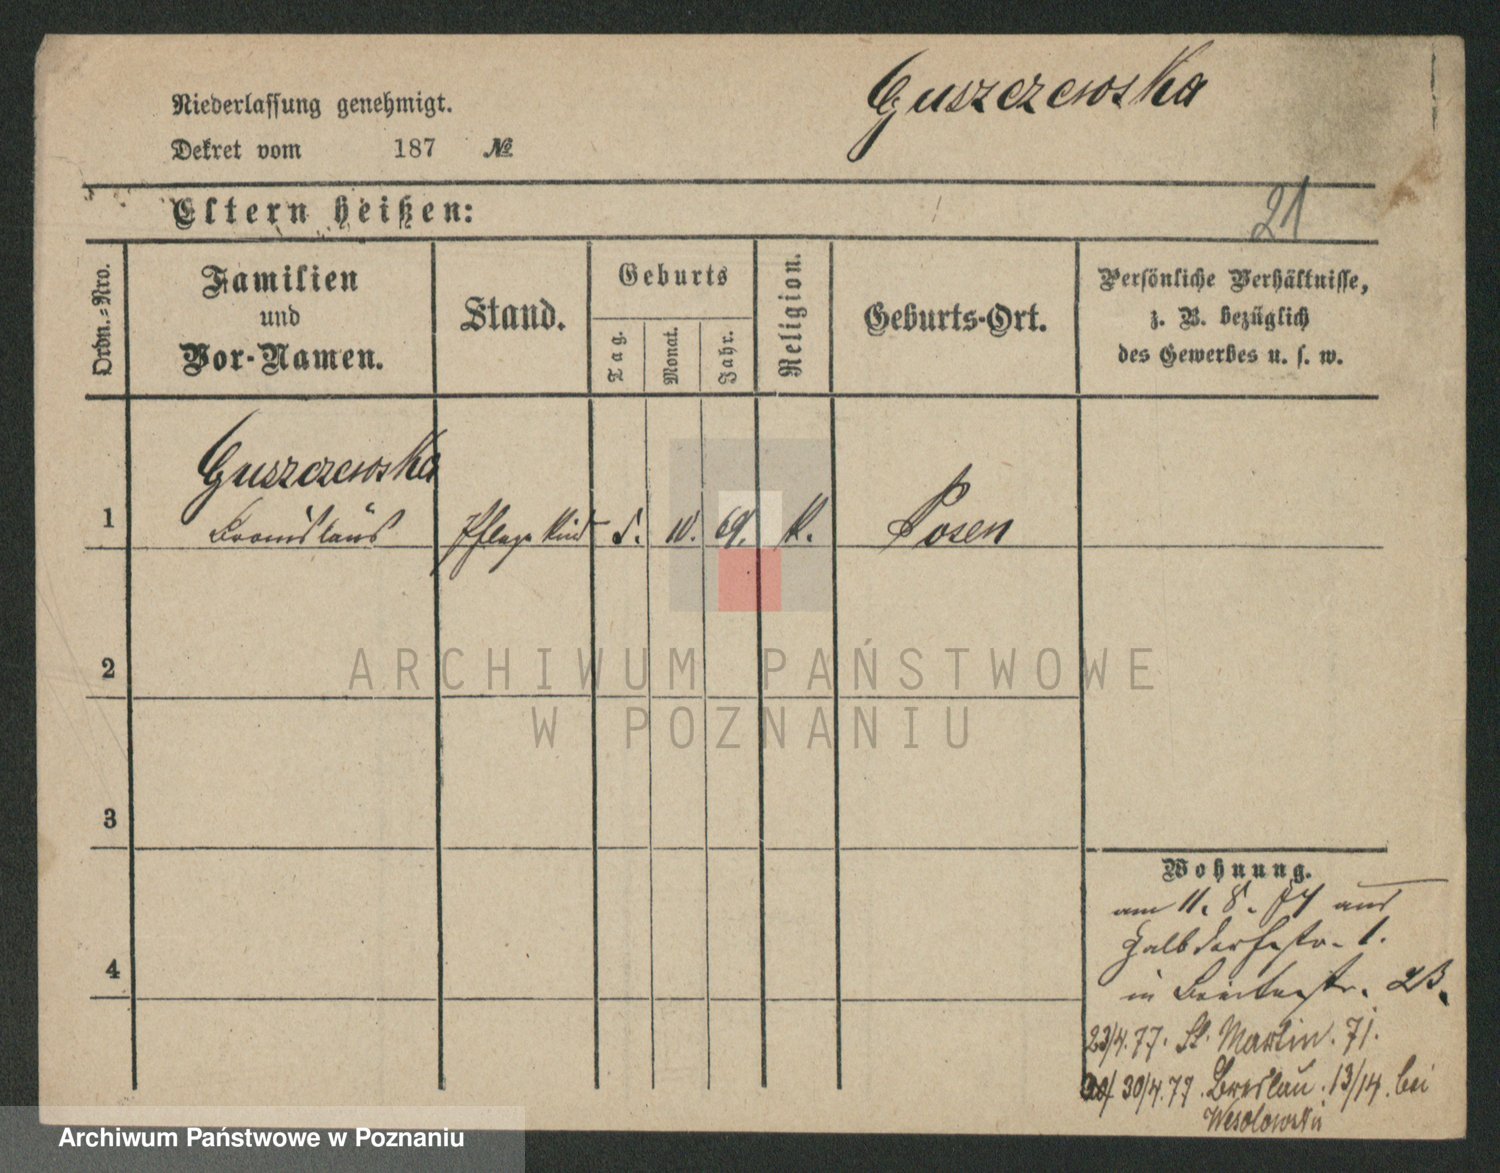 Guszczewska
Niederlassung genehmigt.
Dekret vom 187 №
Eltern heißen:
21
Ordn.=Nro.
Familien
und
Vor-Namen.
Stand.
Geburts
Tag.
Monat.
Jahr.
Religion.
Geburts-Ort.
Persönliche Verhältnisse,
z. B. bezüglich
des Gewerbes u. s. w.
Guszczewska
1 Bronislaus Pflege Kind 5. 10. 69. K. Posen
2
ARCHIWUM PAŃSTWOWE
W POZNANIU
3
Wohnung.
am 11. 8. 74 aus
Halbdorfstr. 1.
in Breitestr.
4
23/4.77. St. Martin. 71.
30/4.77. Breslau. 13/14. bei
Wesolowski
Archiwum Państwowe w Poznaniu